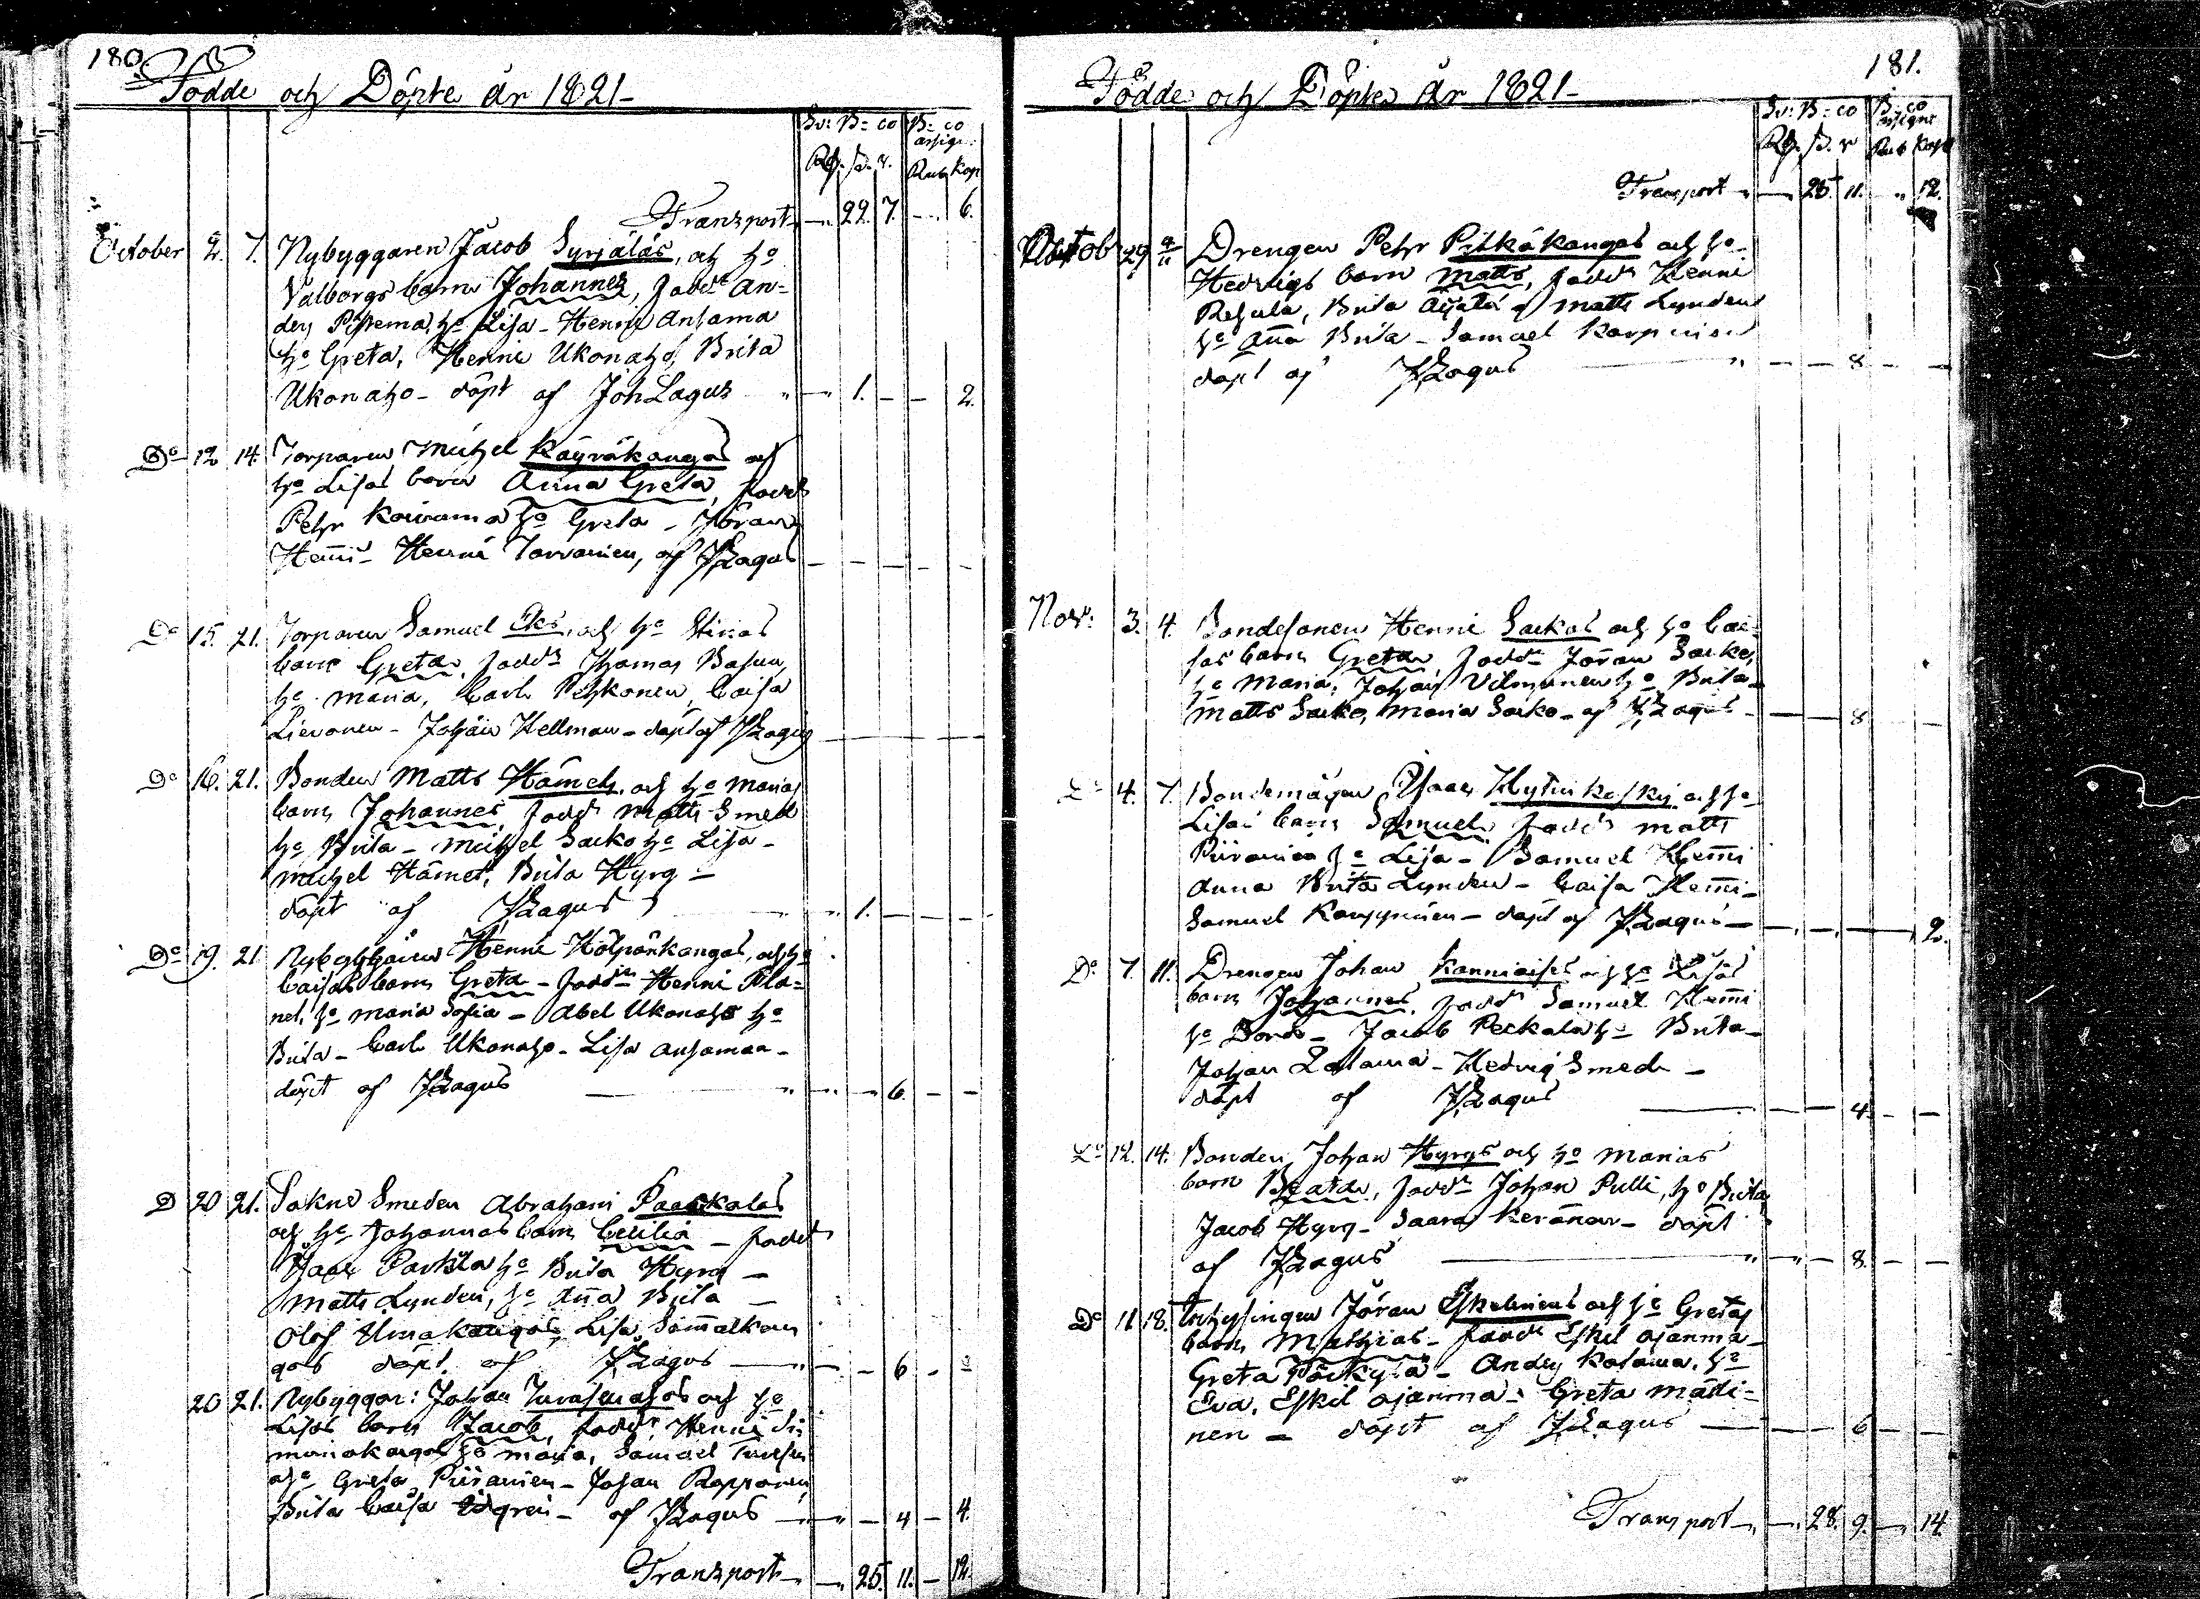 180.
Födde och Döpte år 1821-
Sv: B=co B=co assign:
Rd. s. r. Rub. Kop
Transport - 22. 7. - 6.
October 2. 7. Nybyggaren Jacob Syrjäläs, och ho
Valborgs barn Johannes, fadd. An-
ders ho Lisa - Henric Ansama
ho Greta, Henric Ukonaho, Brita
Ukonaho - döpt af Joh Lagus - 1. - - 2.
Do 12 14. Torparen Michel Käyräkangas och
ho Lisas barn Anna Greta, fadd
Pehr ho Greta - Jöran
Hemi - Henric Torvainen, af JLagus
Do 15. 21. Torparen Samuel och ho Stinas
barn Greta, fadd Thomas
ho Maria, Carl Caisa
Lievonen - Johan Hellman - döpt af JLagus
Do 16. 21. Bonden Matts Hämeh, och ho Marias
barn Johannes, fadd Matts Smed
ho Brita - Michel Sarko ho Lisa -
Michel Hämeh, Brita Hyrg -
döpt af JLagus - 1. - - -
Do 19. 21 Nybyggaren Henric Hölpänkangas, och ho
Caisas barn Greta - fadd Henric Pla-
net, ho Maria Sofia - Abel Ukonaho ho
Brita - Carl Ukonaho - Lisa Ansamaa -
döpt af JLagus - - 6. - -
D 20 21. Sokne Smeden Abraham Paaskalas
och ho Johannas barn Cecilia - fadd
ho Brita Hyrg -
Matts Lynden, ho Anna Brita -
Olof Lisa Sämalkan
gas döpt af JLagus - - 6 - -
20 21. Nybyggar: Johan och ho
Lisas barn Jacob, fadd Henric Si
maniakangas ho Maria, Samuel
ho Greta Piirainen - Johan Rapponen,
Brita Caisa - af JLagus - - 4 - 4.
Transport - 25. 11. - 12.
181.
Födde och Döpte År 1821-
Sv: B=co B=co assign:
Rd. s. r Rub Kop
Transport - 25 11. - 12.
Octob 29 4/11 Drengen Pehr Pitkäkangas och ho
Hedvigs barn Matts, fadd Henric
Brita Matts Lynden
ho Anna Brita - Samuel Karpinien
döpt af JLagus - - 8 - -
Nov: 3. 4. Bondesonen Henric Sarkos och ho Cai-
sas barn Greta, fadd Jöran Sarko,
ho Maria, Johan Vilmunen ho Brita -
Matts Sarko, Maria Sarko - af JLagus - - 8
Do 4. 7. Bondemågen Isaac Hytinkoskis och ho
Lisas barn Samuel, fadd Matts
Piirainen ho Lisa - Samuel Hemi
Anna Brita Lynden - Caisa Hemi -
Samuel Karppinien - döpt af JLagus - - - - 2.
Do 7. 11. Drengen Johan och ho Lisas
barn Johannes, fadd Samuel Hemi
ho - Jacob Peckala ho Brita -
Johan Latama - Hedvig Smed -
döpt af JLagus - - 4 - -
Do 12. 14. Bonden Johan Hyrgs och ho Marias
barn Beata, fadd Johan Pulli, ho Brita,
Jacob Hyrg - Saara Keränen - döpt
af JLagus - - 8. - -
Do 11 18. Inhysingen Jöran Eskelinens och ho Gretas
barn Mathias - fadd Eskil Ajanma -
Greta - Anders Katama, ho
Eva, Eskil Ajanma - Greta Mati-
nen - döpt af JLagus - - 6 - -
Transport - 28. 9. - 14